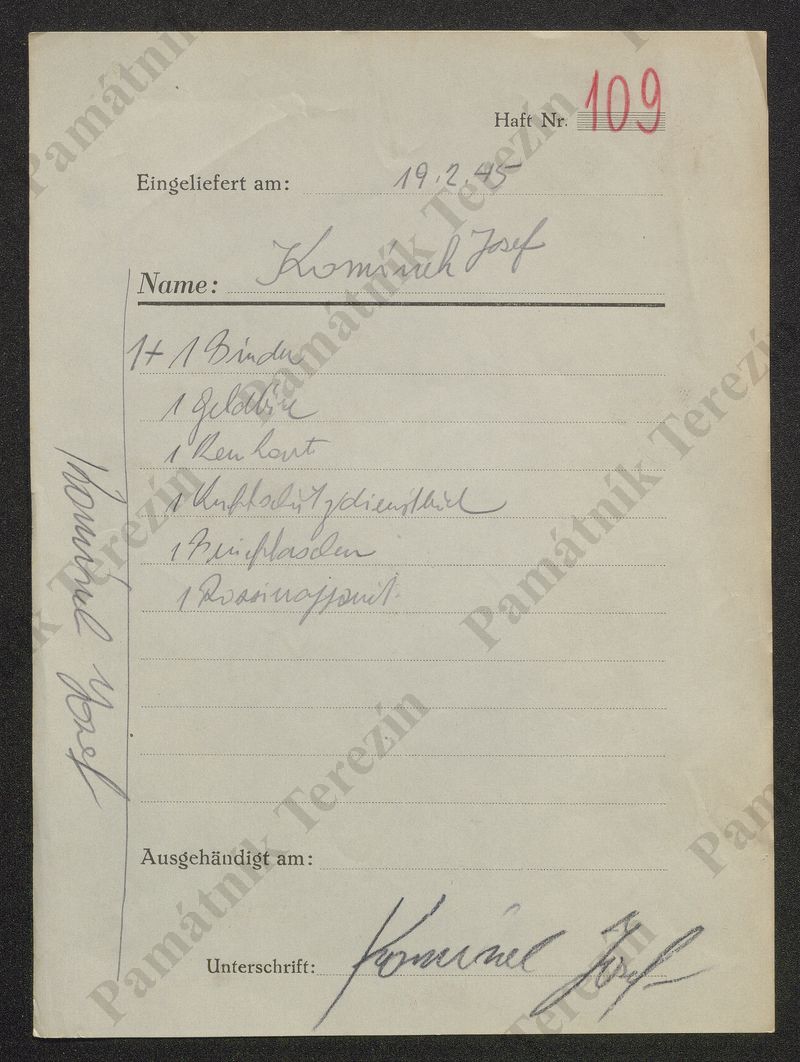 Haft Nr. 109
Eingeliefert am: 19.2.45
Name: Kominek Josef
1+ 1 Binder
1 Geldbörse
1 Kenkart
1 Luftschutzdienstbuch
1 Brieftaschen
1 Rossierapparat
Ausgehändigt am:
Unterschrift: Kominek Josef
Kominek Josef
Památník Terezín
Památník Terezín
Památník Terezín
Památník Terezín